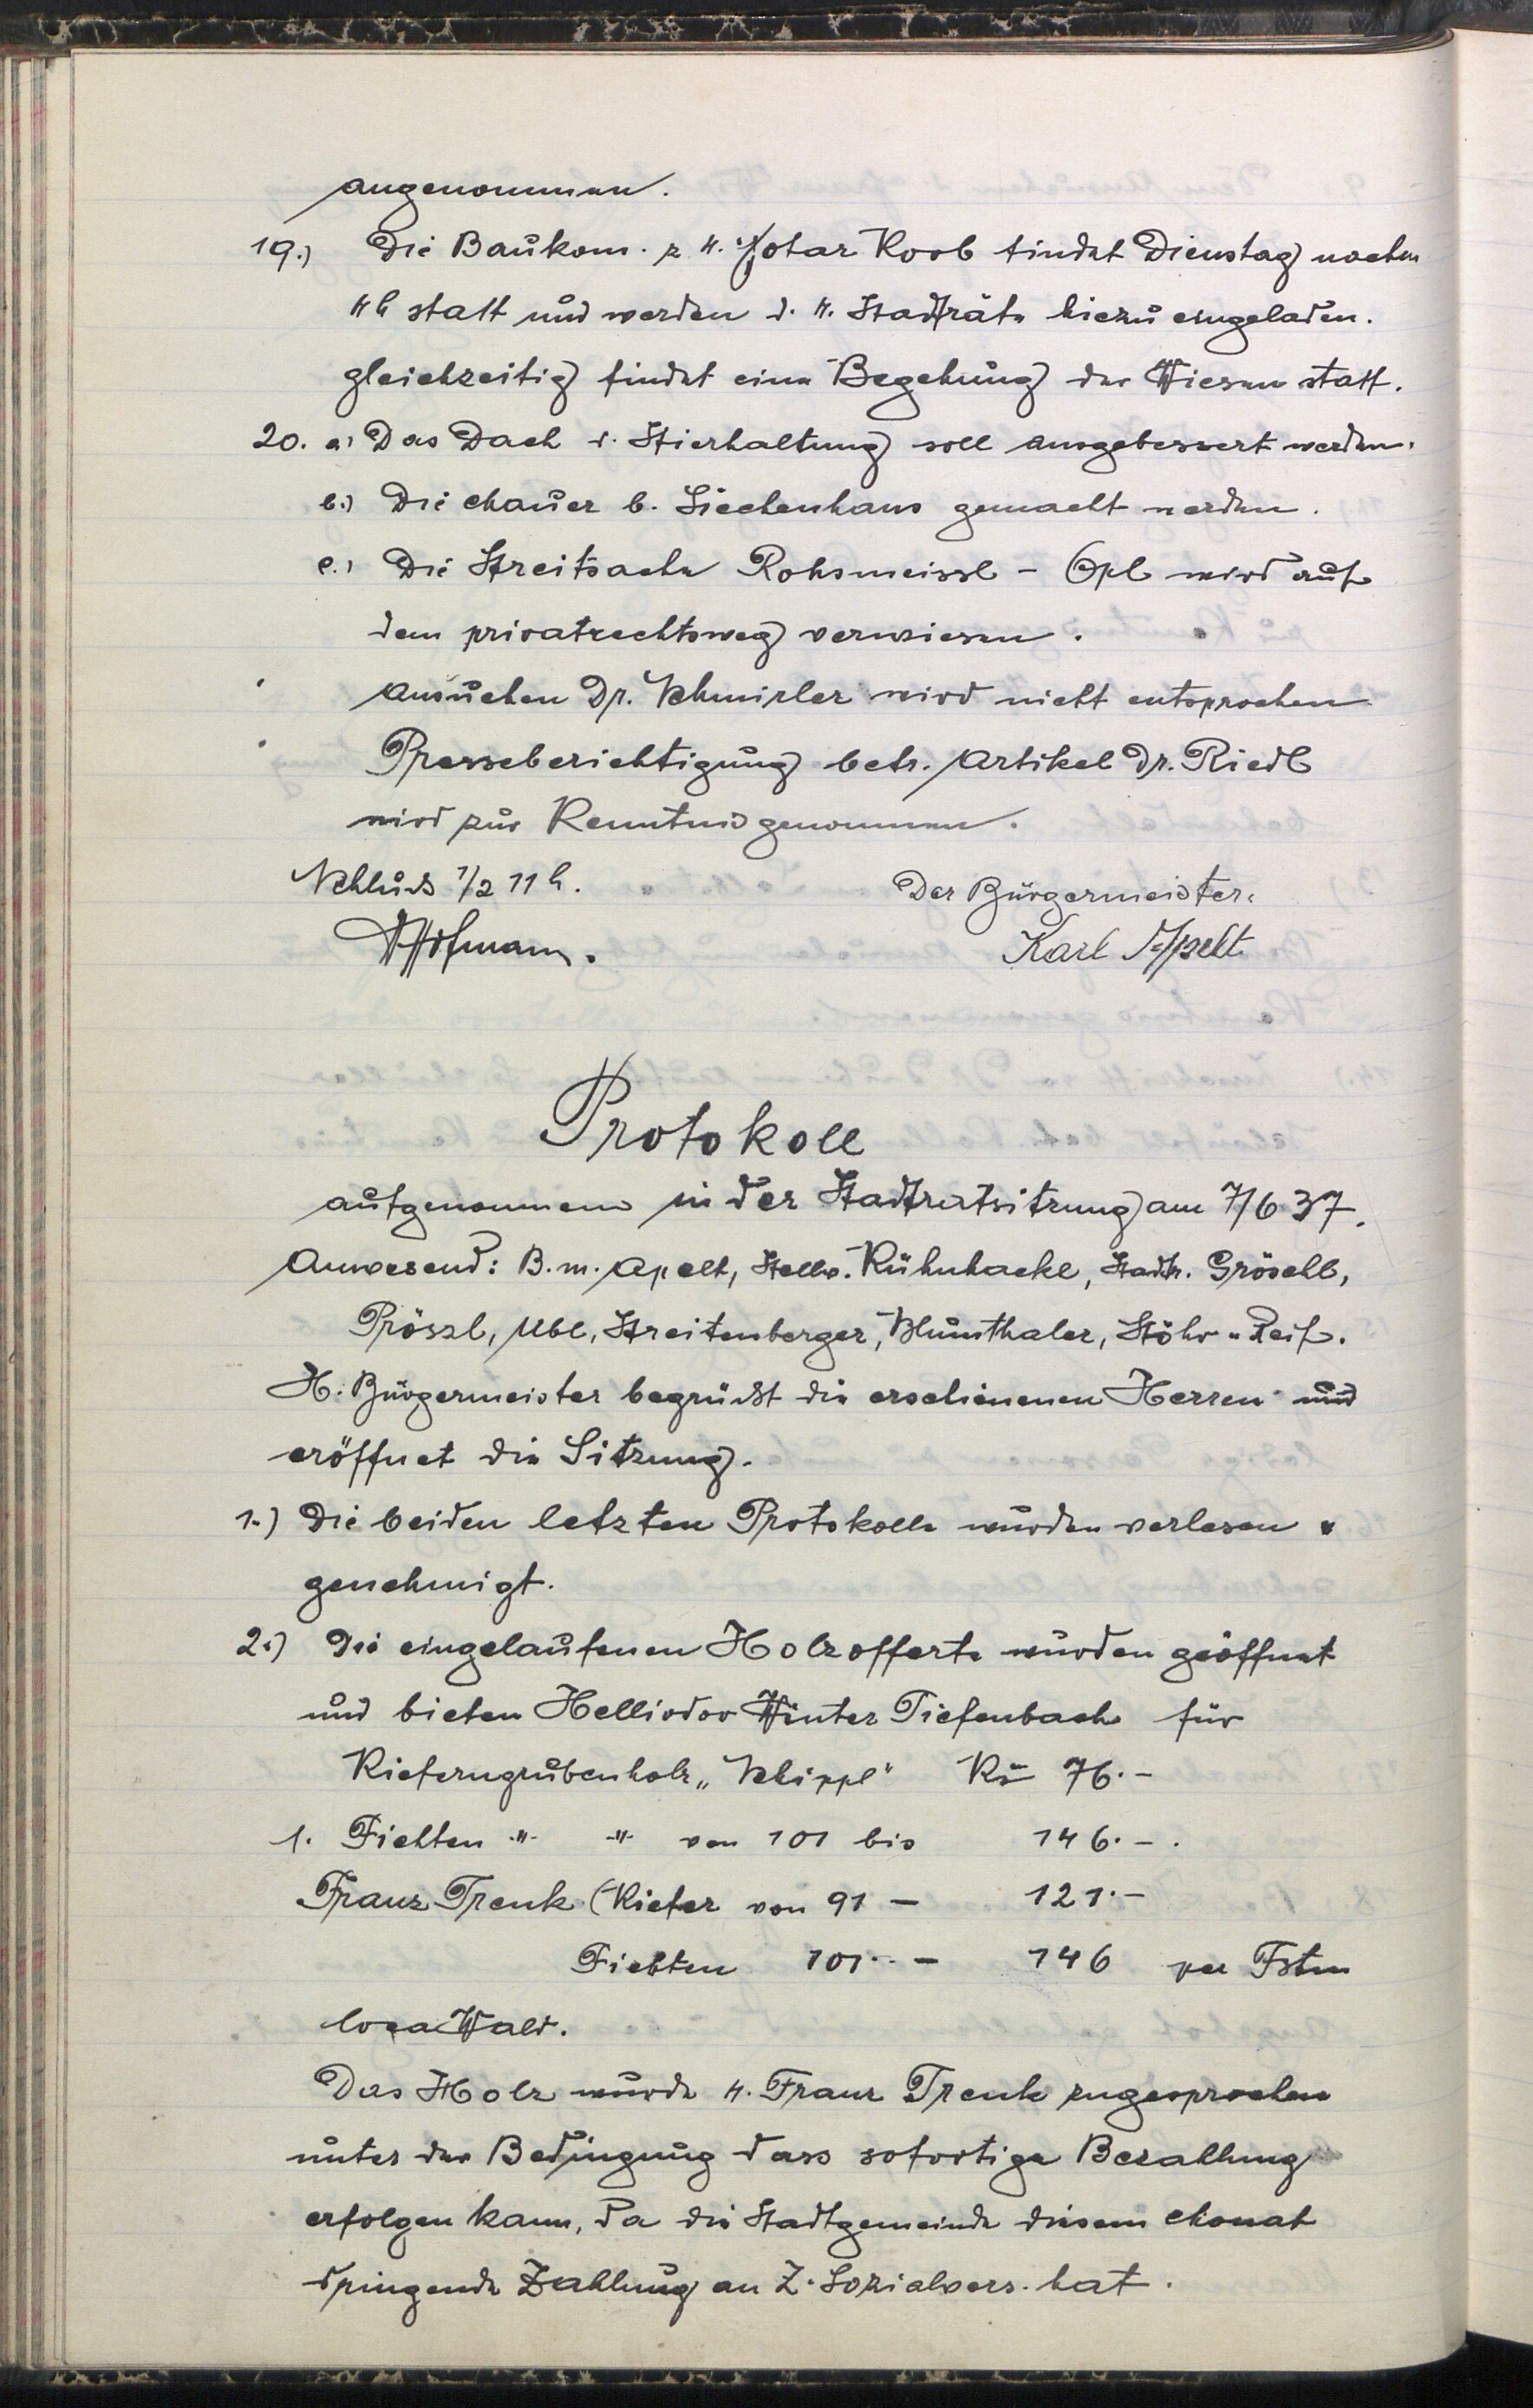 angenommen.
19.) Die Baukom. z. H. Notar Koob findet Dienstag nachm
4h statt und werden d. H. Stadträte hiezu eingeladen.
gleichzeitig findet eine Begehung der Wiesen statt.
20. a) Das Dach d. Stierhaltung soll ausgebessert werden.
b.) Die Mauer b. Siechenhaus gemacht werden.
c.) Die Streitsache Rohsmeissl - Opl wird auf
dem privatrechtsweg verwiesen.
Ansuchen Dr. Schmirler wird nicht entsprochen
Presseberichtigung betr. Artikel Dr. Riedl
wird zur Kenntnis genommen.
Schluss 1/2 11 h. Der Bürgermeister.
Hofmann. Karl Apelt
Protokoll
aufgenommen in der Stadtratsitzung am 7/6 37.
Anwesend: B.m. Apelt, Stellv. Kühnhackl, Stadtr. Gröschl,
Prössl, Ubl, Streitenberger, Blumthaler, Stöhr u. Reif.
H. Bürgermeister begrüsst die erschienenen Herren und
eröffnet die Sitzung.
1.) Die beiden letzten Protokolle wurden verlesen u
genehmigt.
2.) Die eingelaufenen Holzofferte wurden geöffnet
und bieten Helliodor Winter Tiefenbach für
Kieferngrubenholz „Schippl" Kč 76.-
1. Fichten -"- -"- von 101 bis 146.-.
Franz Trenk (Kiefer von 91 - 121.-
Fichten 101.- - 146 per Fstm
loca Wald.
Das Holz wurde H. Franz Trenk zugesprochen
unter der Bedingung dass sofortige Bezahlung
erfolgen kann, da die Stadtgemeinde diesem Monat
dringende Zahlung an Z. Sozialvers. hat.